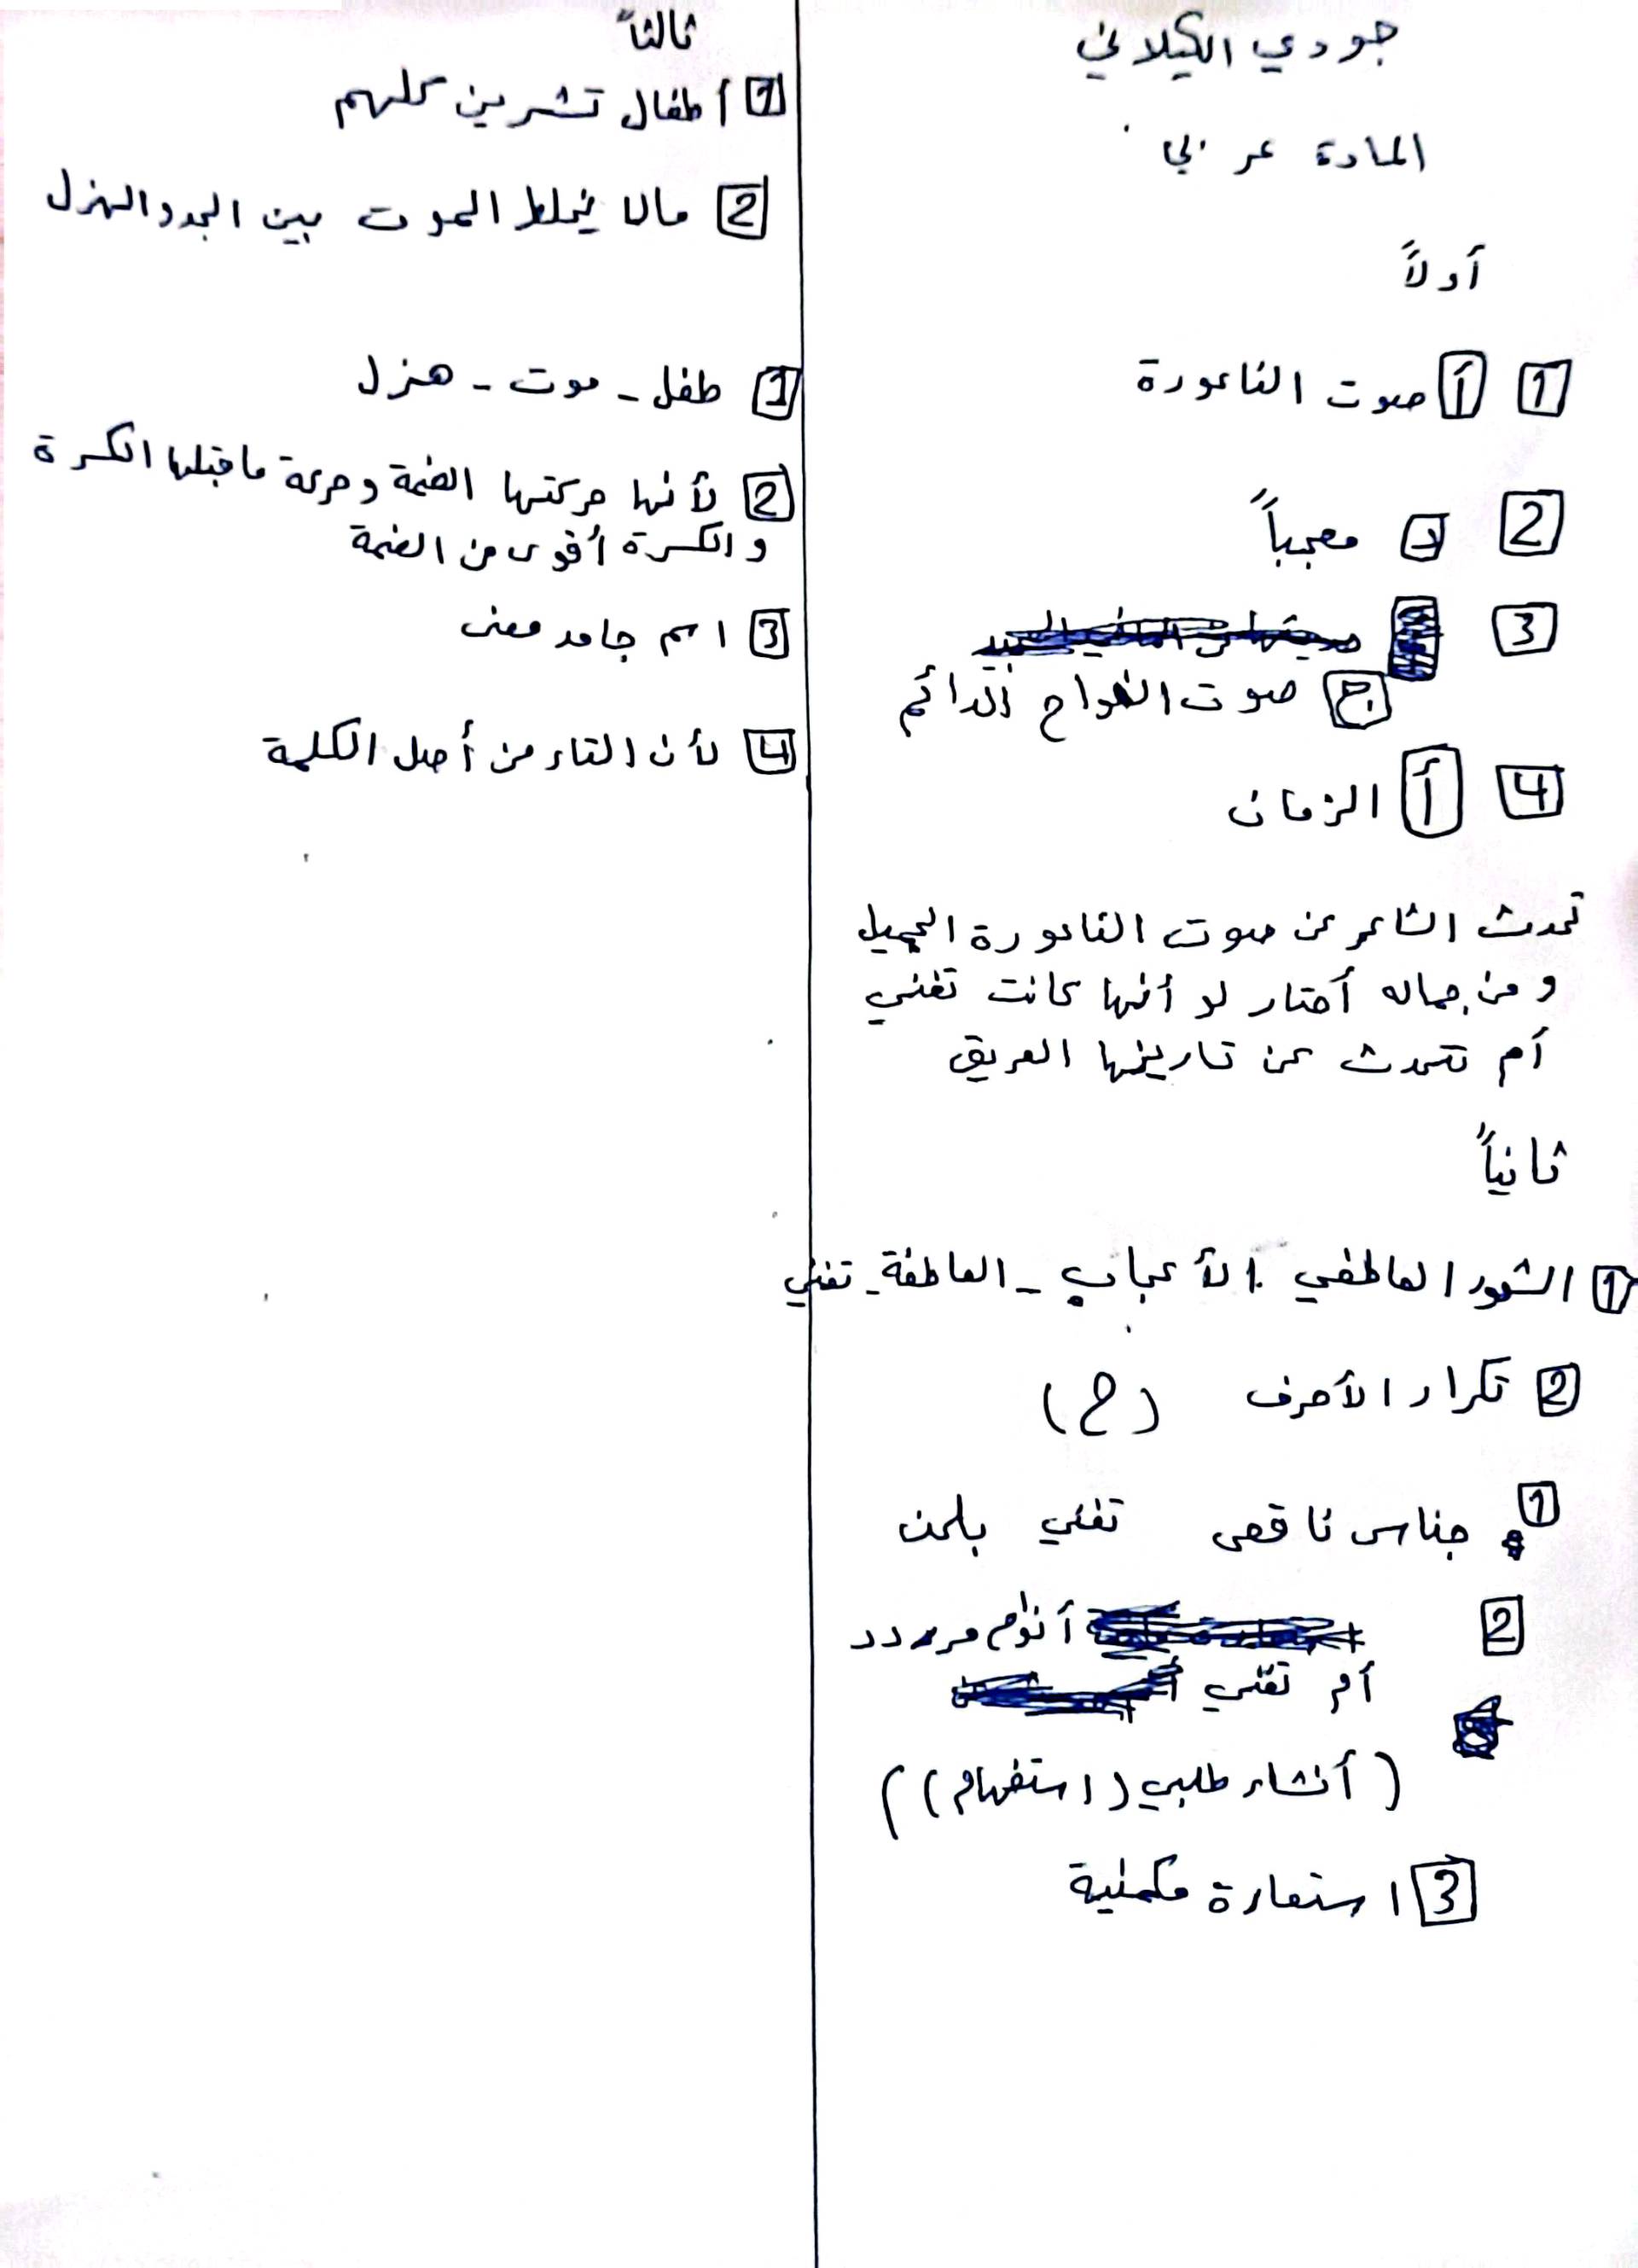 جودي الكيلاني
المادة عربي
أولاً
1 أ صوت الناعورة
2 د معجباً
3
ج صوت النواح الدائم
4 أ الزمان
تحدث الشاعر عن صوت الناعورة الجميل
و من جماله أحتار لو أنها كانت تغني
أم تتحدث عن تاريخها العريق
ثانياً
1 الشعور العاطفي الأعجاب - العاطفة - تغني
2 تكرار الأحرف (ح)
1 جناس ناقص تغني بلحن
2 أنواح مردد
أم تغني
(أنشاء طلبي (استفهام))
3 استعارة مكمنية
ثالثاً
1 أطفال تشرين كلهم
2 مالا يخلط الموت بين الجد والهزل
1 طفل - موت - هزل
2 لأنها حركتها الضمة وحركة ماقبلها الكسرة
والكسرة أقوى من الضمة
3 اسم جامد معنى
4 لأن التاء من أصل الكلمة